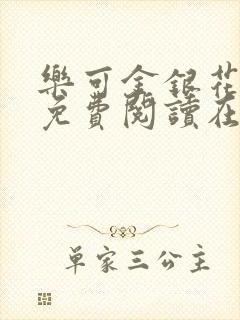 樂可金銀花
免費閱讀在
單家三公主